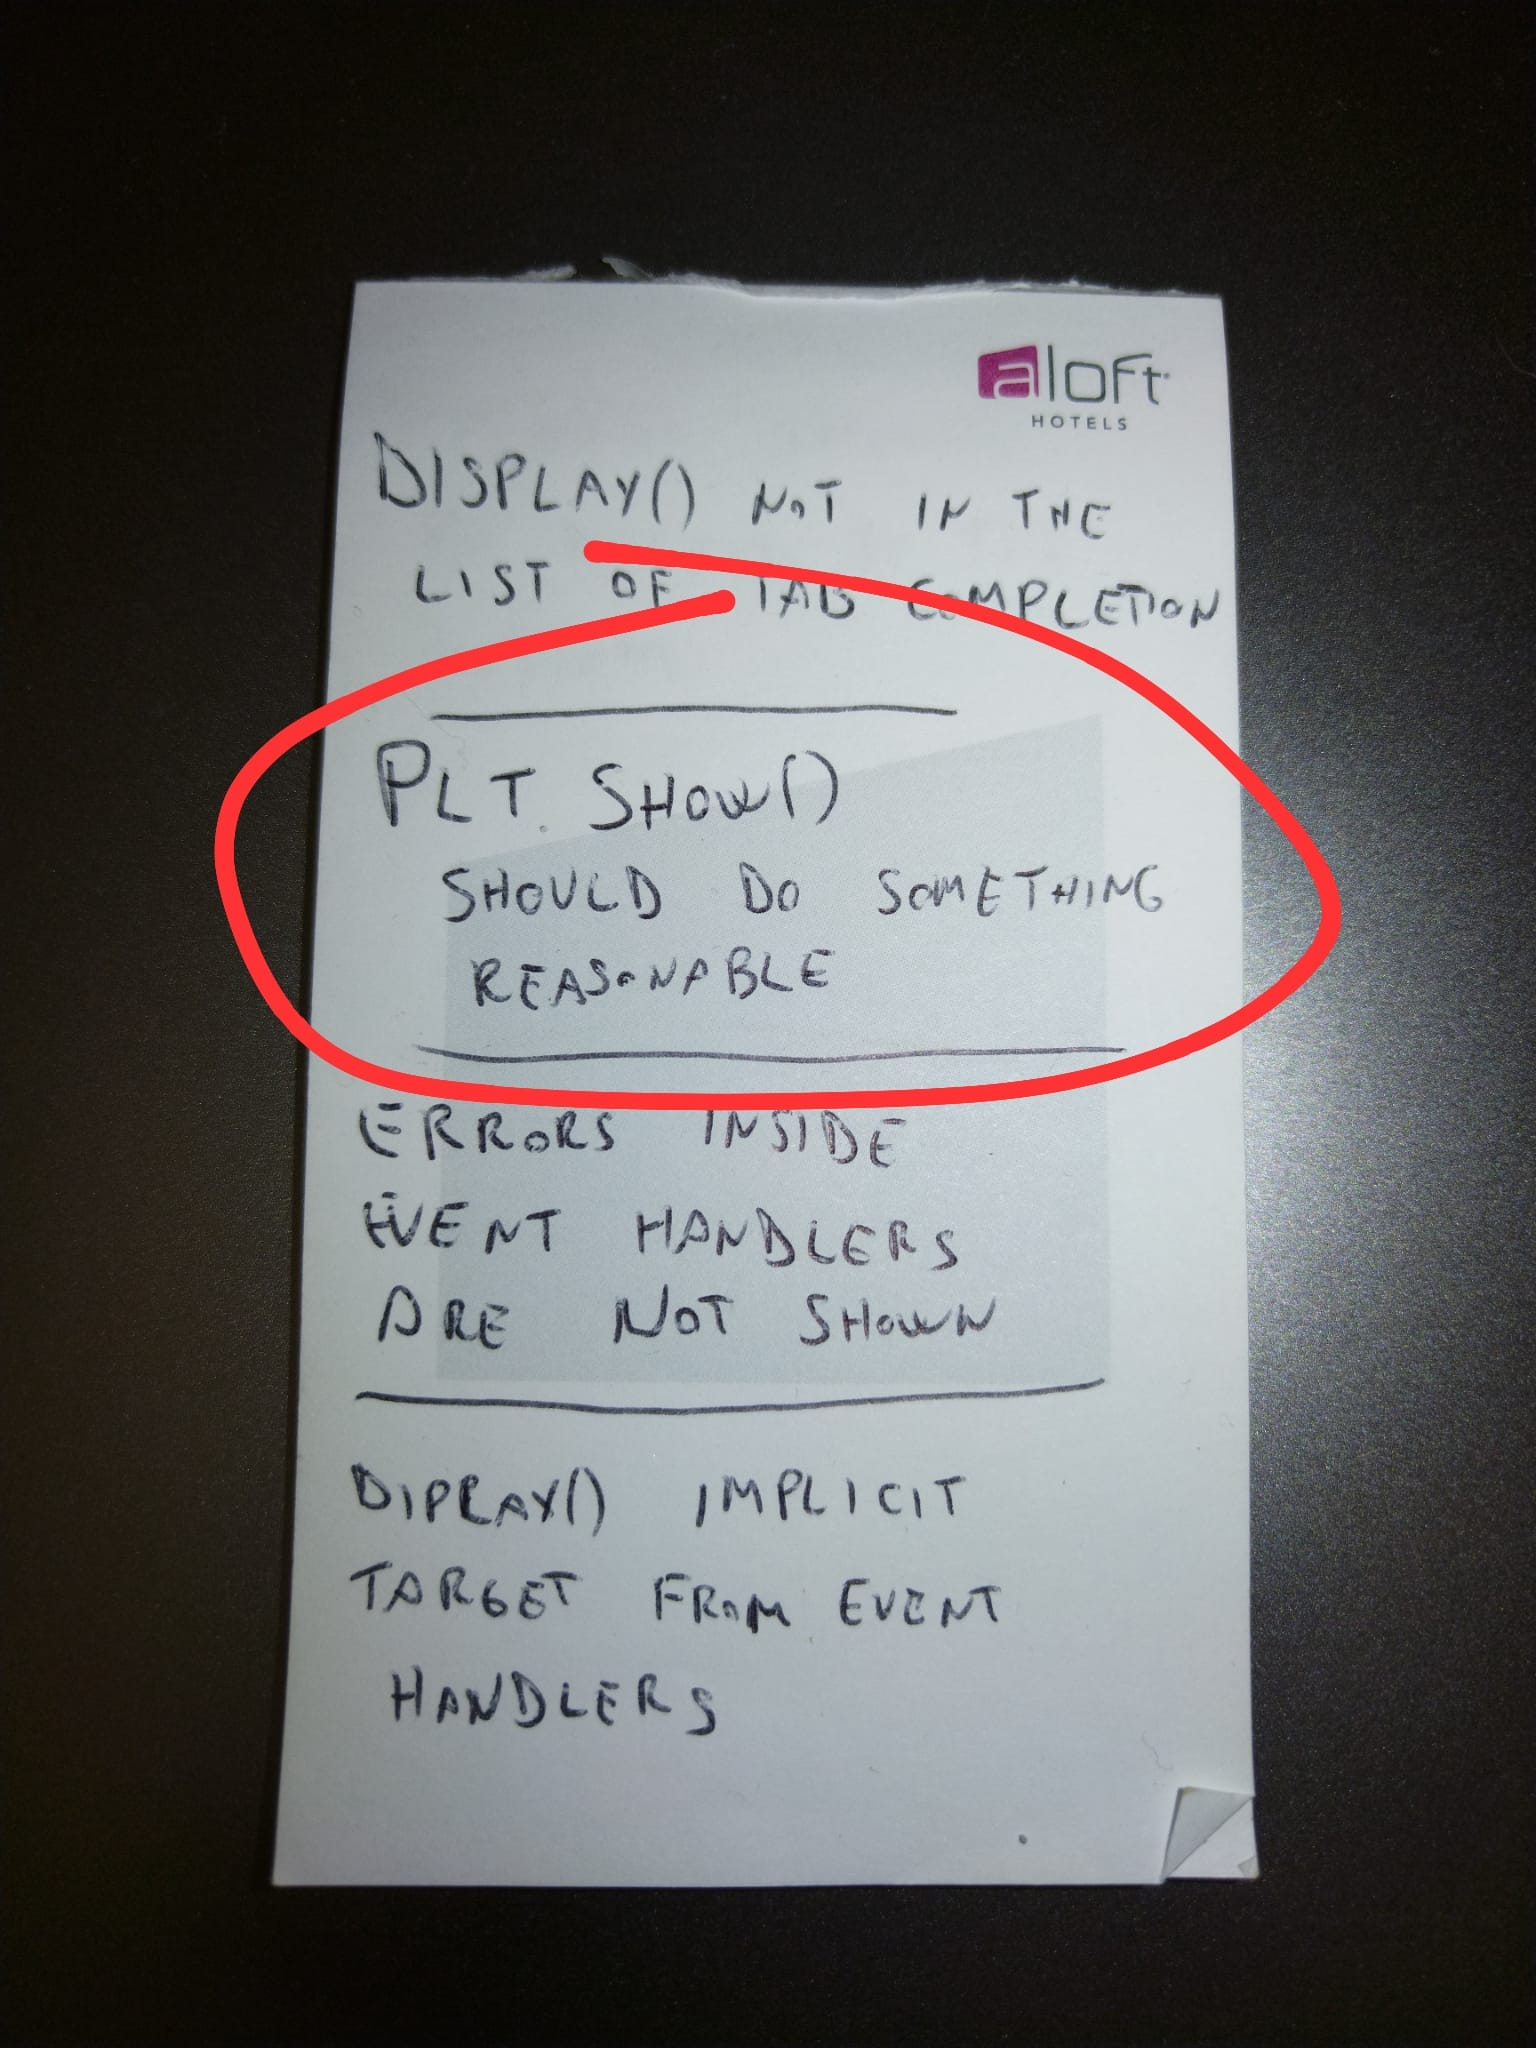 aloft
HOTELS
DISPLAY() NOT IN THE
LIST OF TAB COMPLETION
PLT. SHOW()
SHOULD DO SOMETHING
REASONABLE
ERRORS INSIDE
EVENT HANDLERS
ARE NOT SHOWN
DIPLAY() IMPLICIT
TARGET FROM EVENT
HANDLERS